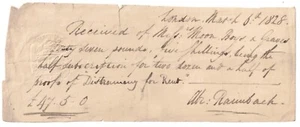 London, March 5th 1828.
Received of Mess. Moon Boys & Graves
Forty Seven pounds, five shillings, being the
half subscription for two dozen and a half of
proofs of Distraining for Rent.
£47-5-0 Abm. Raimbach.